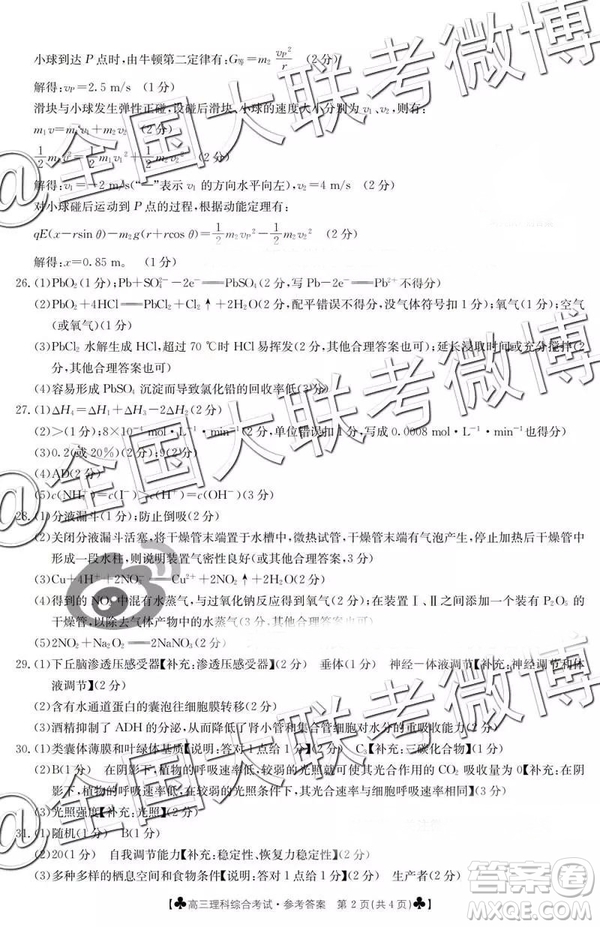 小球到达 P 点时,由牛顿第二定律有:G等=m₂ vP²/r (2分)
解得:vP=2.5 m/s (1分)
滑块与小球发生弹性正碰,设碰后滑块、小球的速度大小分别为 v₁、v₂,则有:
m₁v=m₁v₁+m₂v₂ (2分)
½m₁v²=½m₁v₁²+½m₂v₂² (2分)
解得:v₁=-2 m/s("-"表示 v₁ 的方向水平向左),v₂=4 m/s (2分)
对小球碰后运动到 P 点的过程,根据动能定理有:
qE(x-rsin θ)-m₂g(r+rcos θ)=½m₂vP²-½m₂v₂² (2分)
解得:x=0.85 m。(1分)
26.(1)PbO₂(1分);Pb+SO₄²⁻-2e⁻══PbSO₄(2分,写 Pb-2e⁻══Pb²⁺ 不得分)
(2)PbO₂+4HCl══PbCl₂+Cl₂↑+2H₂O(2分,配平错误不得分,没有气体符号扣1分);氧气(1分);空气
(或氧气)(1分)
(3)PbCl₂ 水解生成 HCl,超过 70 ℃时 HCl 易挥发(2分,其他合理答案也可);延长浸取时间或充分搅拌(2
分,其他合理答案也可)
(4)容易形成 PbSO₄ 沉淀而导致氯化铅的回收率降低(2分)
27.(1)ΔH₄=ΔH₁+ΔH₃-2ΔH₂(2分)
(2)>(1分);8×10⁻⁴ mol·L⁻¹·min⁻¹(2分,单位错误扣1分,写成 0.0008 mol·L⁻¹·min⁻¹ 也得分)
(3)0.2(或 20%)(2分);9(2分)
(4)AD(2分)
28.(1)分液漏斗(1分);防止倒吸(2分)
(2)关闭分液漏斗活塞,将干燥管末端置于水槽中,微热试管,干燥管末端有气泡产生,停止加热后干燥管末端
形成一段水柱,则说明装置气密性良好(或其他合理答案,3分)
(3)Cu+4H⁺+2NO₃⁻══Cu²⁺+2NO₂↑+2H₂O(3分)
(4)得到的 NO₂ 中混有水蒸气,与过氧化钠反应会得到氧气(2分);在装置Ⅰ、Ⅱ之间添加一个装有 P₂O₅ 的
干燥管,以除去气体产物中的水蒸气(2分)
(5)2NO₂+Na₂O₂══2NaNO₃(2分)
29.(1)下丘脑渗透压感受器【补充:渗透压感受器】(2分) 垂体(1分) 神经一体液调节【补充:神经调节和体
液调节】(2分)
(2)含有水通道蛋白的囊泡往细胞膜转移(2分)
(3)酒精抑制了 ADH 的分泌,从而降低了肾小管和集合管细胞对水分的重吸收能力(2分)
30.(1)类囊体薄膜和叶绿体基质【说明:答对1点给1分】(2分) C₃【补充:三碳化合物】(1分)
(2)B(1分) 在阴影下,植物的呼吸速率低;较弱的光照就可以使得植物的光合作用的 CO₂ 吸收量为0【补充:
阴影下,植物的呼吸速率低;在较弱的光照条件下,其光合速率与细胞呼吸速率就可相等】(2分)
(3)光照强度【补充:光强】(2分)
31.(1)随机(1分) B(1分)
(2)20(1分) 自我调节能力【补充:稳定性、恢复力稳定性】(2分)
(3)多种多样的栖息空间和食物条件【说明:答对1点给1分】(2分)
♣高三理科综合考试·参考答案 第 2 页(共 4 页)♣
@全国大联考微博
@全国大联考微博
答案圈
MXQE.COM